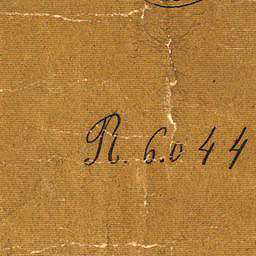 R. 6.0 44